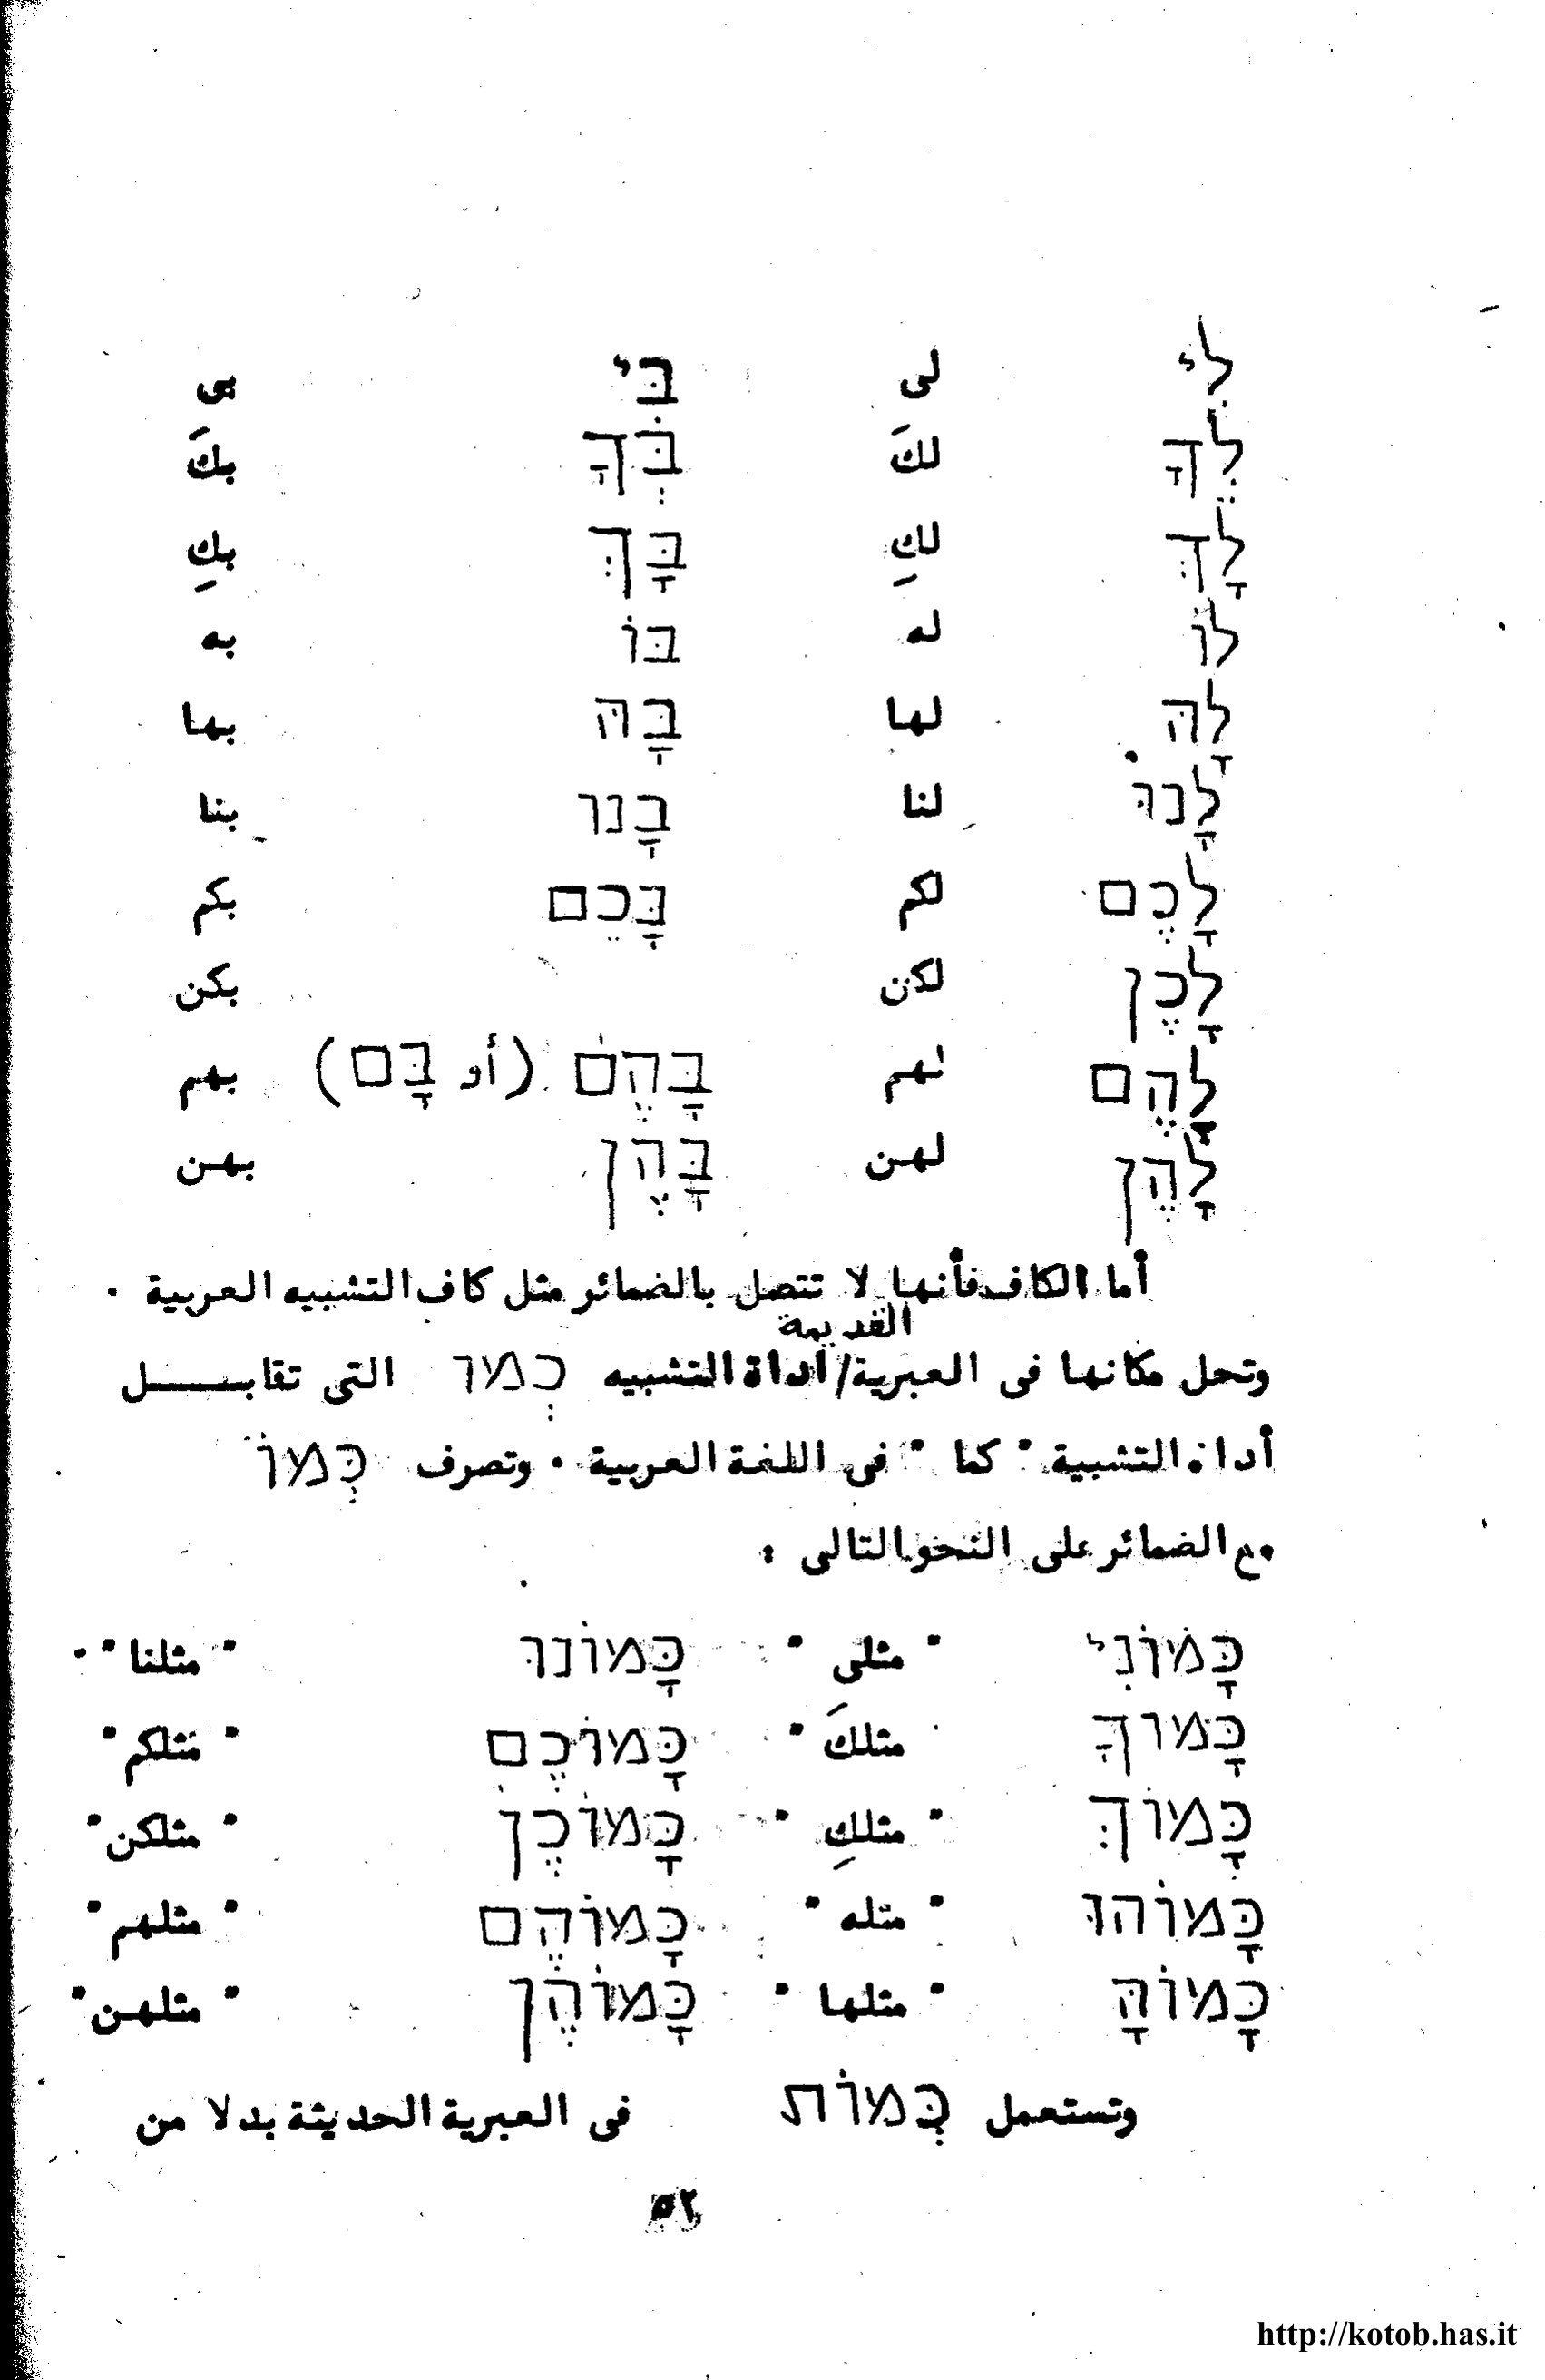 לִי لى בִּי بى
לְךָ لكَ בְּךָ بكَ
לָךְ لكِ בָּךְ بكِ
לוֹ له בּוֹ به
לָהּ لها בָּהּ بها
לָנוּ لنا בָּנוּ بنا
לָכֶם لكم בָּכֶם بكم
לָכֶן لكن بكن
לָהֶם لهم בָּהֶם (أو בָּם) بهم
לָהֶן لهن בָּהֶן بهن
أما الكاف فأنها لا تتصل بالضمائر مثل كاف التشبيه العربية ٠
القديمة
وتحل مكانها فى العبرية/ اداة التشبيه כְּמוֹ التى تقابــــل
أداة التشبية " كما " فى اللغة العربية ٠ وتصرف כְּמוֹ
مع الضمائر على النحو التالى :
כָּמוֹנִי " مثلى " כָּמוֹנוּ " مثلنا " ٠
כָּמוֹךָ " مثلكَ " כָּמוֹכֶם " مثلكم "
כָּמוֹךְ " مثلكِ " כָּמוֹכֶן " مثلكن "
כָּמוֹהוּ " مثله " כָּמוֹהֶם " مثلهم "
כָּמוֹהָ " مثلها " כָּמוֹהֶן " مثلهن "
وتستعمل כְּמוֹת فى العبرية الحديثة بدلا من
٥٢
http://kotob.has.it